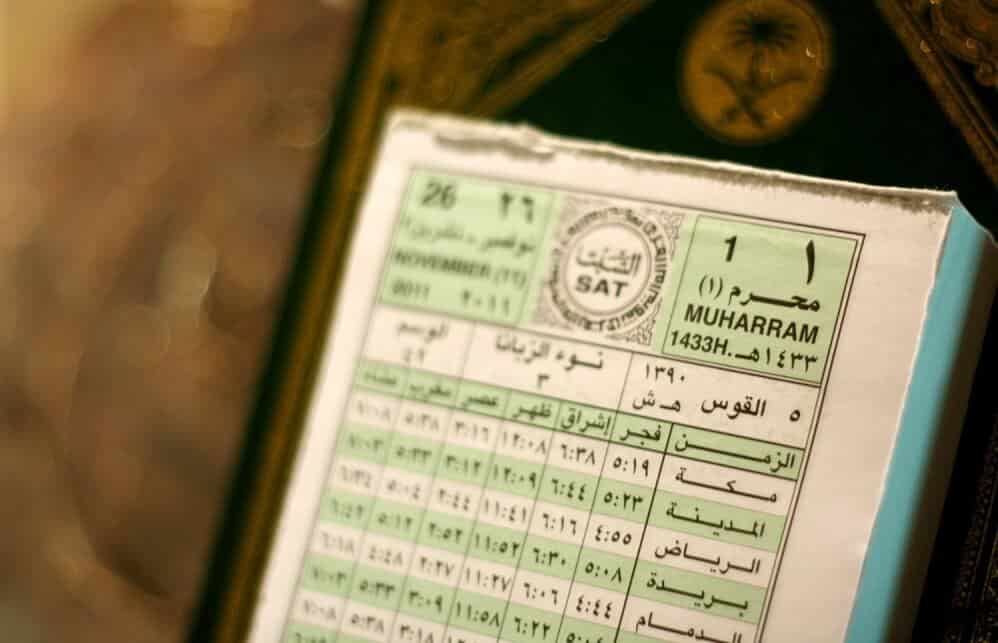 1 ١
محرم (١)
MUHARRAM
1433H. ١٤٣٣هـ
السبت
SAT
26 ٢٦
نوفمبر - تشرين٢
NOVEMBER (١١)
2011 ٢٠١١
١٣٩٠
٥ القوس هـ ش
نوء الزبانا
٣
الوسم
الزمن فجر إشراق ظهر عصر مغرب عشاء
مكة ٥:١٩ ٦:٣٨ ١٢:٠٨ ٣:١٦ ٥:٣٨ ٧:٠٨
المدينة ٥:٢٣ ٦:٤٤ ١٢:٠٩ ٣:١٢ ٥:٣٣ ٧:٠٣
الرياض ٤:٥٥ ٦:١٦ ١١:٤١ ٢:٤٤ ٥:٠٤ ٦:٣٤
بريدة ٥:٠٨ ٦:٣٠ ١١:٥٢ ٢:٥٢ ٥:١٢ ٦:٤٢
الدمام ٤:٤٤ ٦:٠٦ ١١:٢٧ ٢:٢٧ ٤:٤٨ ٦:١٨
٦:٢٢ ١١:٥٨ ٣:٠٩ ٥:٣٣ ٧:٠٣
٣:١٨ ٥:٣٨ ٧:٠٨